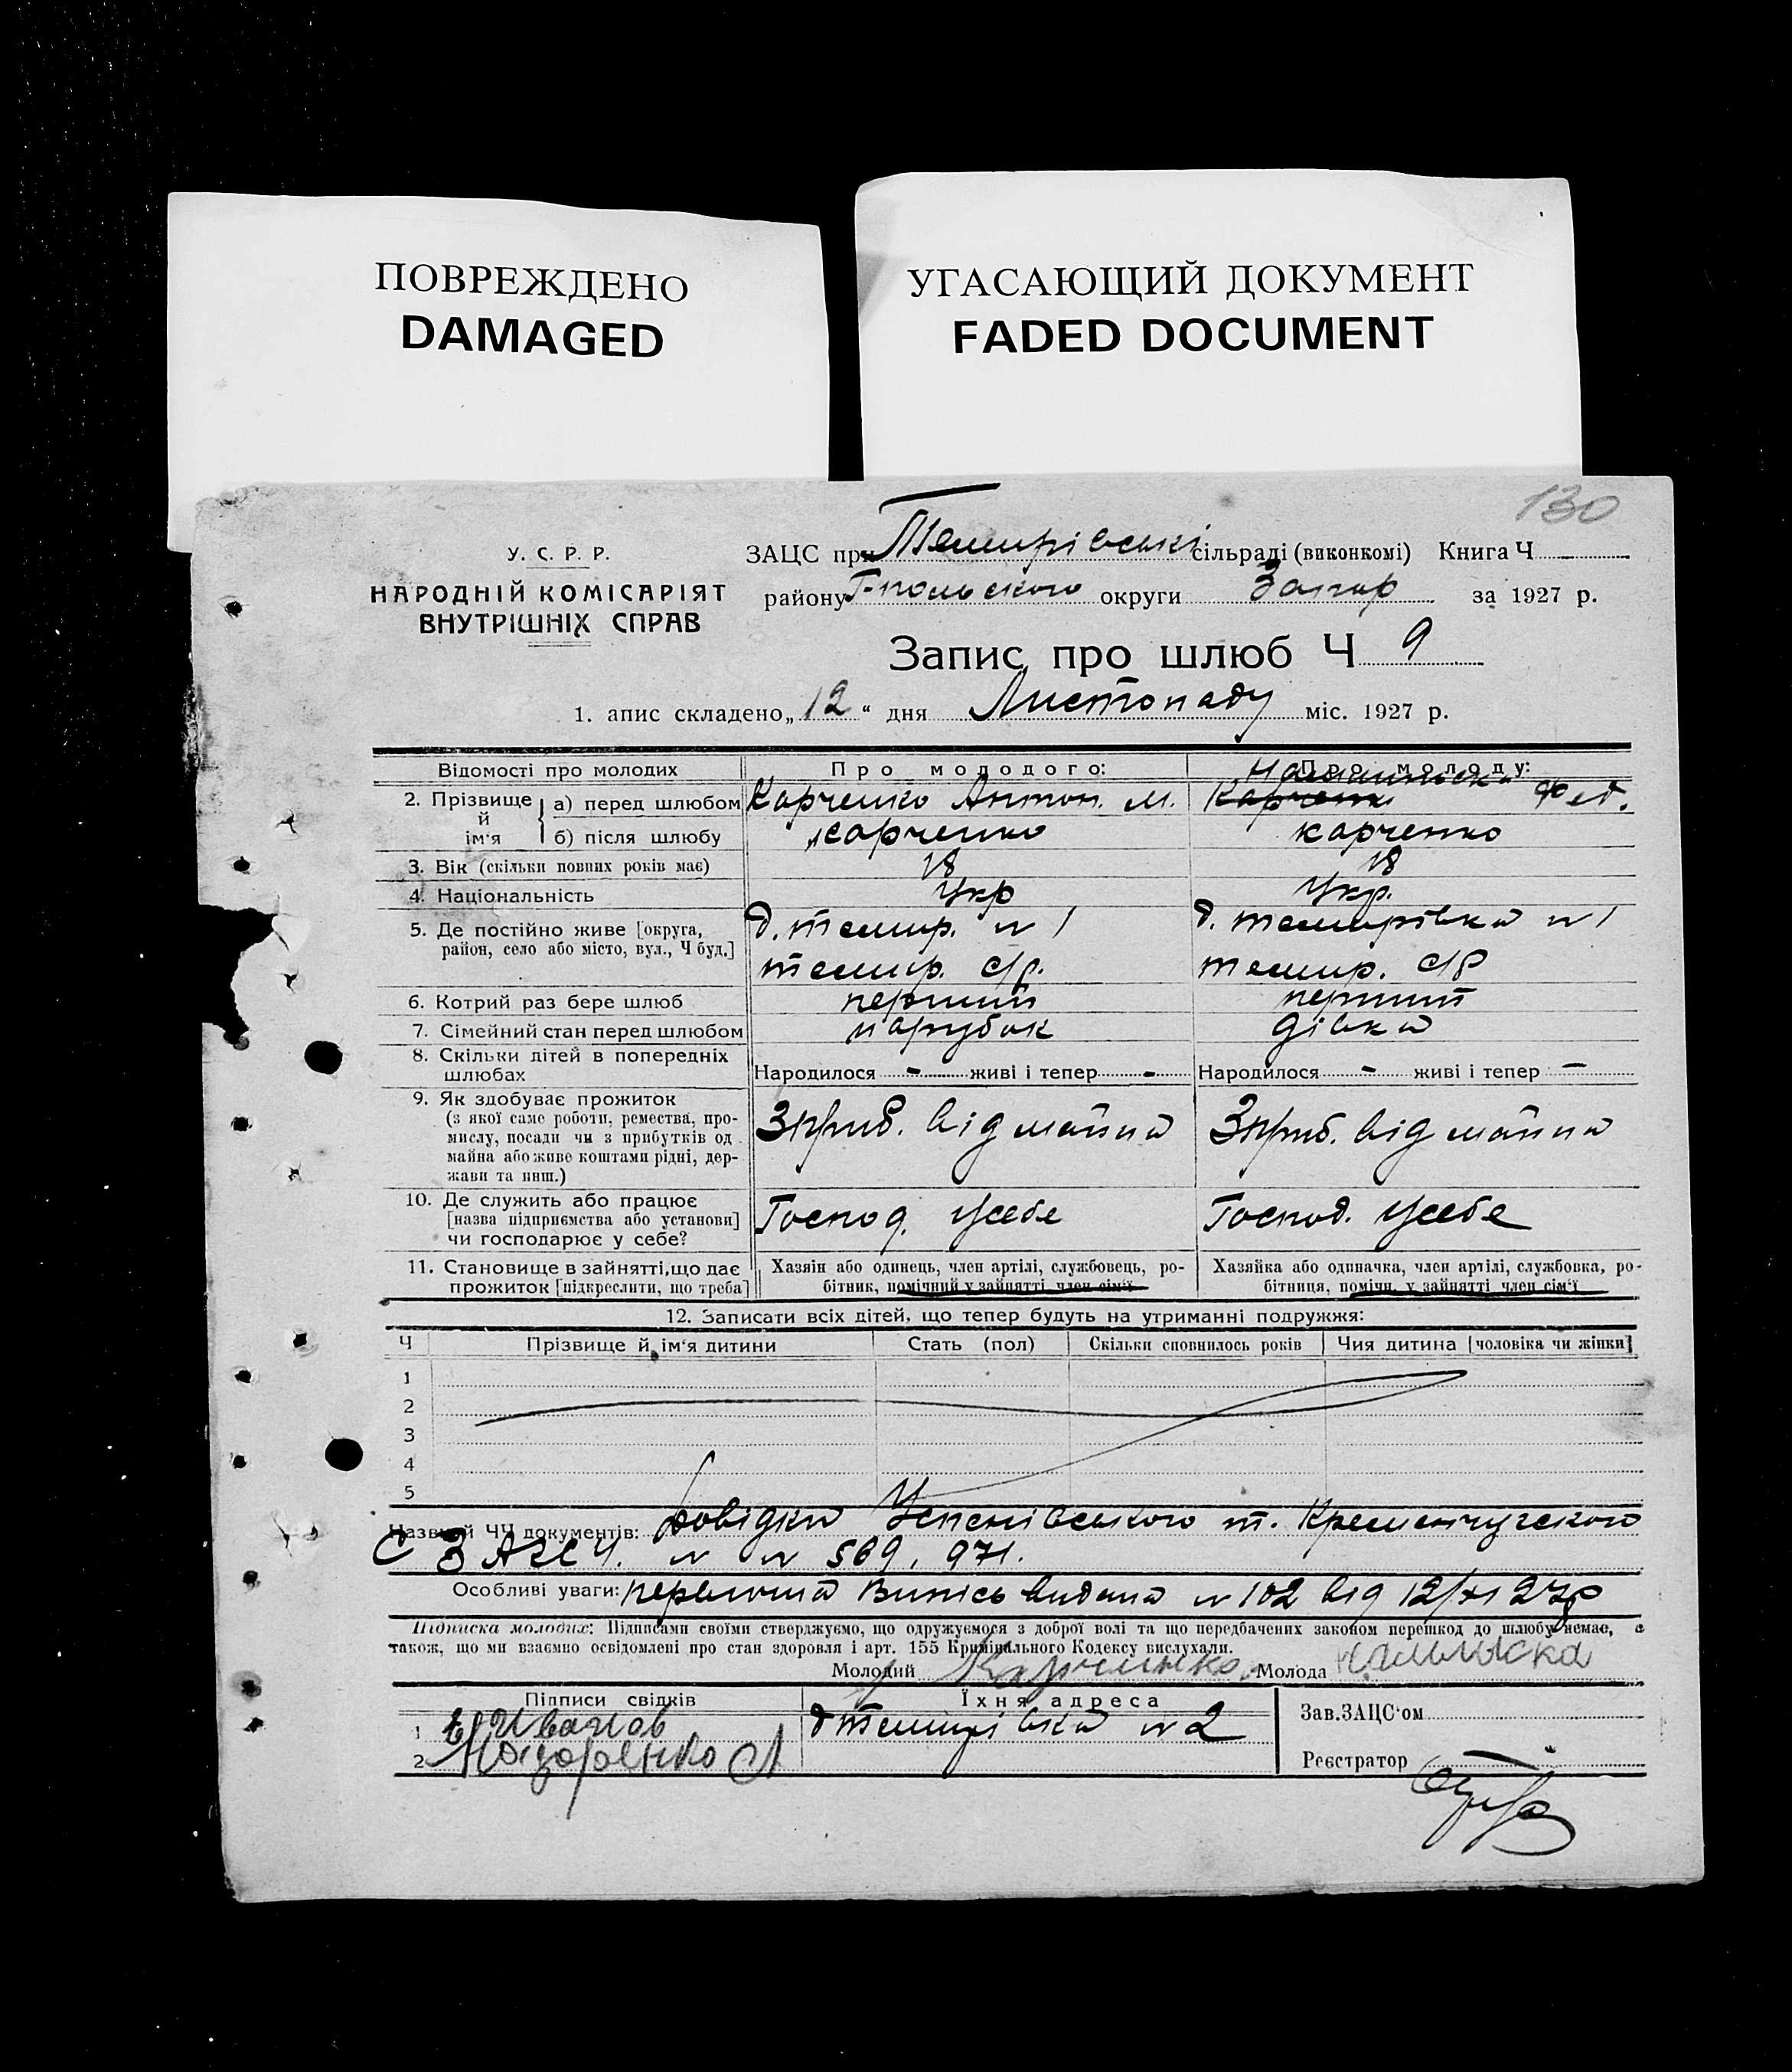 ПОВРЕЖДЕНО
DAMAGED
УГАСАЮЩИЙ ДОКУМЕНТ
FADED DOCUMENT
130
У. С. Р. Р.
НАРОДНІЙ КОМІСАРІЯТ
ВНУТРІШНІХ СПРАВ
ЗАЦС при Темирівські сільраді (виконкомі) Книга Ч
району Г-польского округи Запор за 1927 р.
Запис про шлюб Ч 9
1. апис складено „12“ дня Листопаду міс. 1927 р.
Відомості про молодих
Про молодого:
Про молоду:
2. Прізвище й ім'я
а) перед шлюбом Карченко Антон. М. Карченко Фед.
б) після шлюбу Карченко карченко
3. Вік (скільки повних років має) 18 18
4. Національність Укр Укр.
5. Де постійно живе [округа, д. темир. N 1 д. темирівка N 1
район, село або місто, вул., Ч буд.] темир. с/р. темир. с/р
6. Котрий раз бере шлюб перший перший
7. Сімейний стан перед шлюбом парубок дівка
8. Скільки дітей в попередніх
шлюбах Народилося - живі і тепер - Народилося - живі і тепер -
9. Як здобуває прожиток
(з якої саме роботи, ремества, про-
мислу, посади чи з прибутків од
майна або живе коштами рідні, дер-
жави та инш.)
Зприб. від майна Зприб. від майна
10. Де служить або працює
[назва підприємства або установи]
чи господарює у себе?
Господ. усебе Господ. усебе
11. Становище в зайнятті, що дає
прожиток [підкреслити, що треба]
Хазяін або одинець, член артілі, службовець, ро-
бітник, помічний у зайнятті член сім'ї
Хазяйка або одиначка, член артілі, службовка, ро-
бітниця, помічн. у зайнятті член сім'ї
12. Записати всіх дітей, що тепер будуть на утриманні подружжя:
Ч Прізвище й ім'я дитини Стать (пол) Скільки сповнилось років Чия дитина [чоловіка чи жінки]
1
2
3
4
5
Назви й ЧЧ документів: Довідки Успенівського т. Кременчугского
С ЗАГС У. N N 569, 971.
Особливі уваги: Випись видана N 102 від 12/XI 27р
Підписка молодих: Підписами своїми стверджуємо, що одружуємося з доброї волі та що передбачених законом перешкод до шлюбу немає, а
також, що ми взаємно освідомлені про стан здоровля і арт. 155 Кримінального Кодексу вислухали.
Молодий Карченко Молода
Підписи свідків Їхня адреса
1 Иванов д Темирівка N 2
2 Назаренко А
Зав. ЗАЦС'ом
Реєстратор